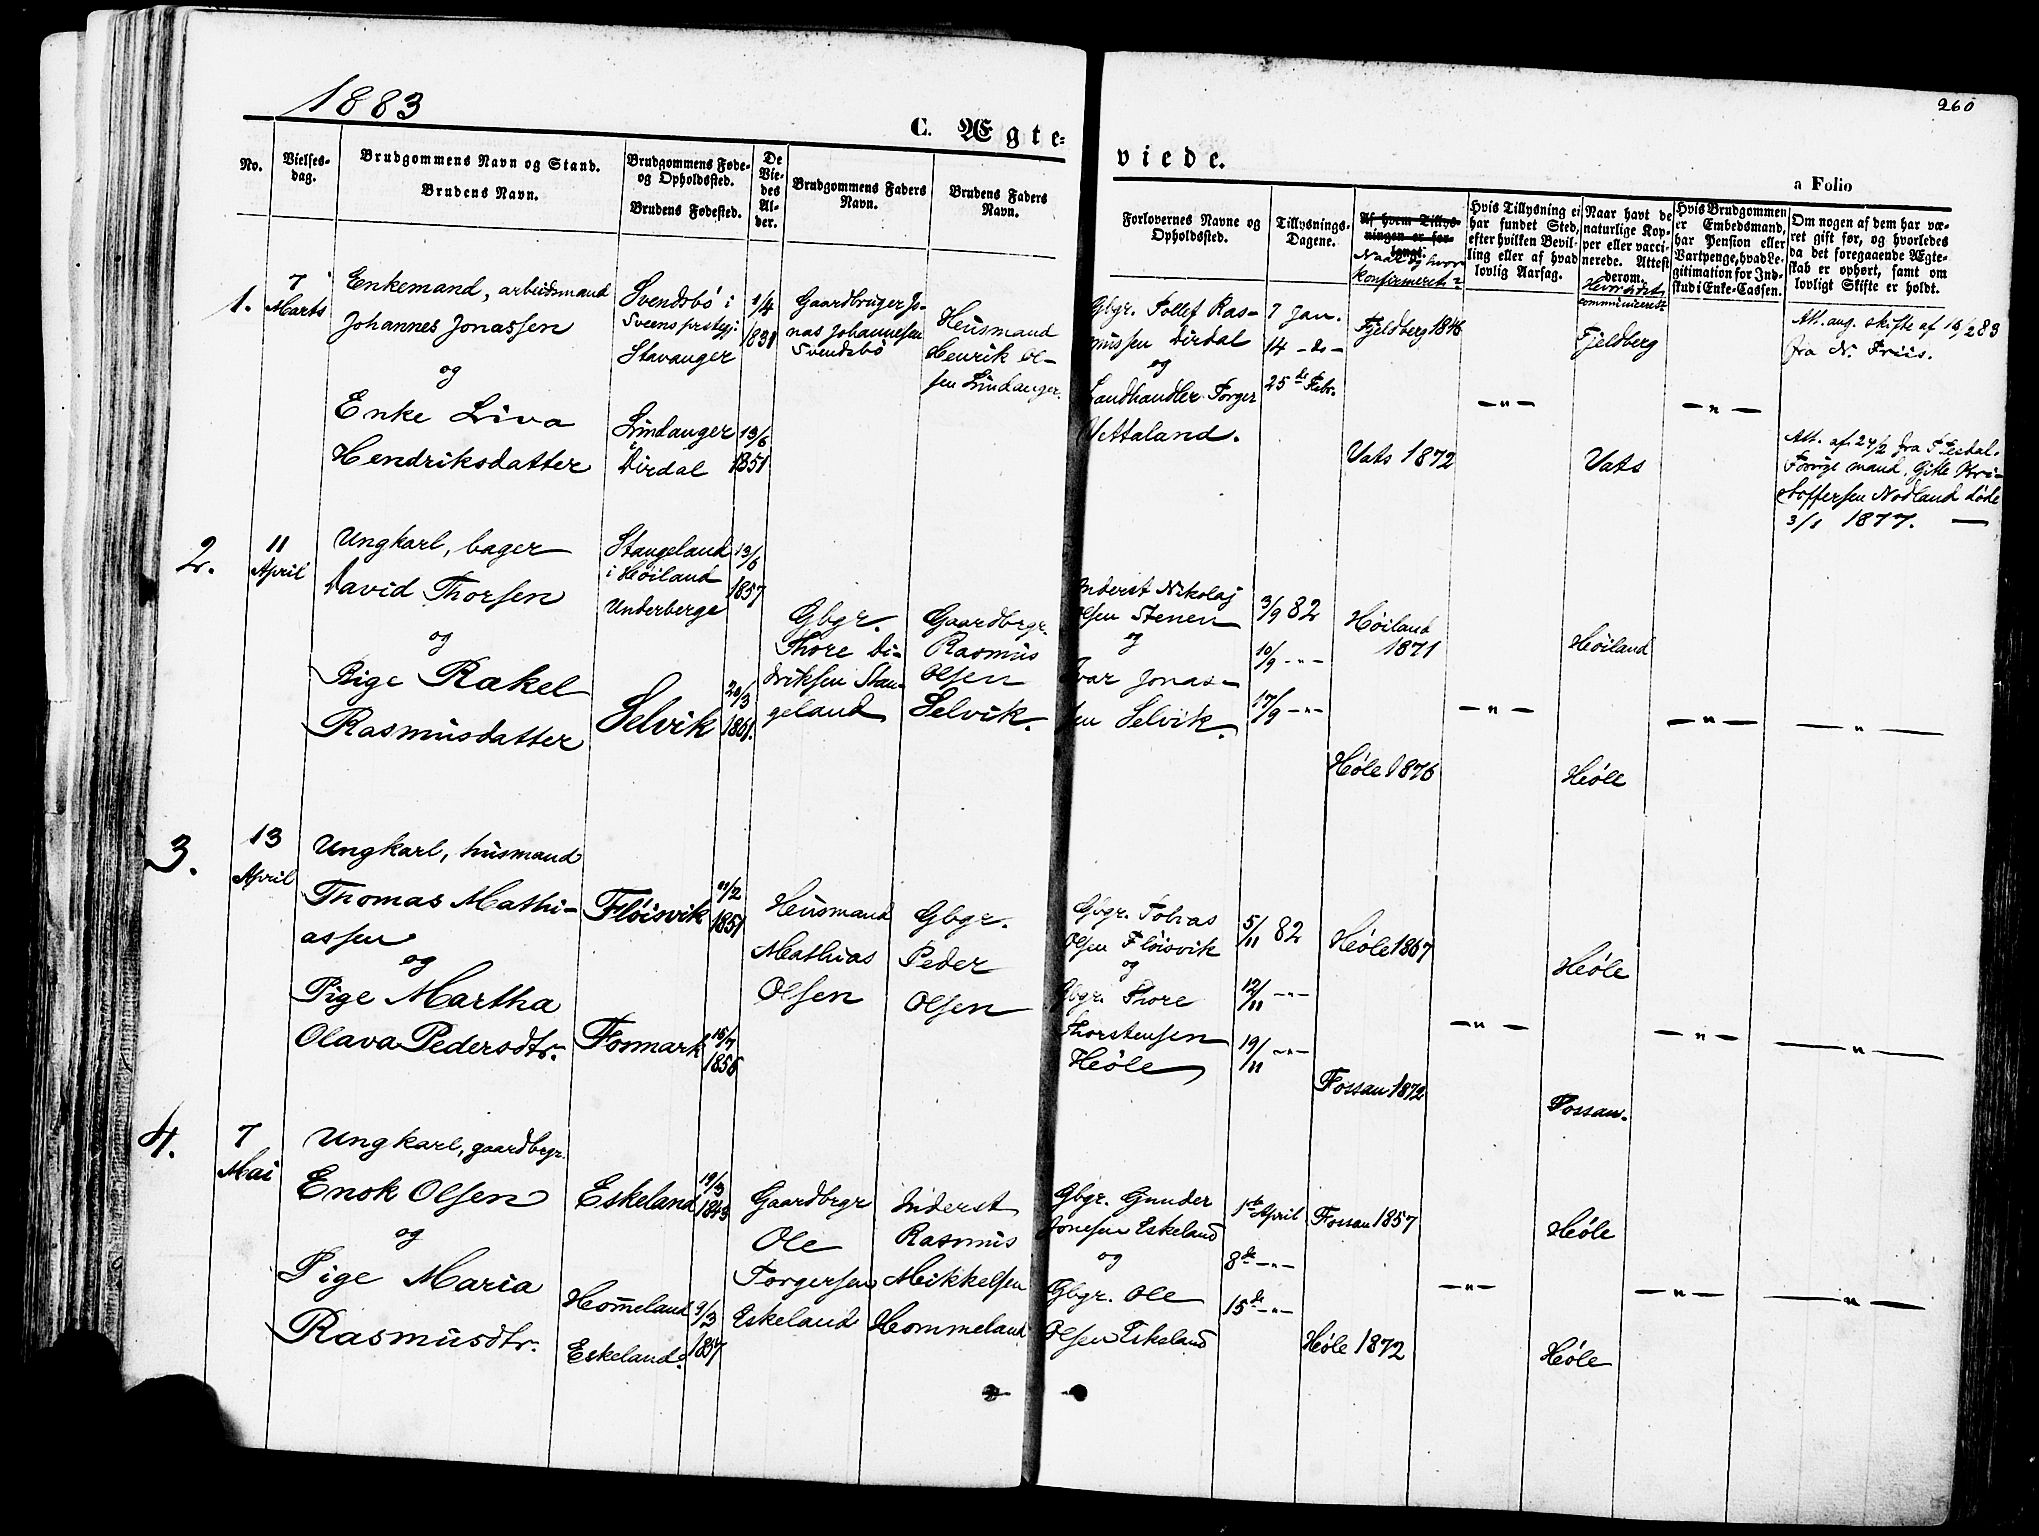 1883
260
C. Ægte-
viede.
a Folio
No.
Vielses-
dag.
Brudgommens Navn og Stand.
Brudens Navn.
Brudgommens Føde-
og Opholdssted.
Brudens Fødested.
De
Vie-
des
Al-
der.
Brudgommens Faders
Navn.
Brudens Faders
Navn.
Forlovernes Navne og
Opholdssted.
Tillysnings-
Dagene.
Af hvem Tillys-
ningen er for-
langt.
Naar og hvor
konfirmeret?
Hvis Tillysning ei
har fundet Sted,
efter hvilken Bevil-
ling eller af hvad
lovlig Aarsag.
Naar havt de
naturlige Kop-
per eller vacci-
nerede. Attest
derom.
Hvor sidst
communiceret
Hvis Brudgommen
er Embedsmand,
har Pension eller
Vartpenge, hvad Le-
gitimation for Ind-
skud i Enke-Cassen.
Om nogen af dem har væ-
ret gift før, og hvorledes
da det foregaaende Ægte-
skab er ophørt, samt om
lovligt Skifte er holdt.
1.
7
Marts
Enkemand, arbeidsmand
Johannes Jonassen
og
Enke Liva
Hendriksdatter
Svendsbö i
Sveens prstgj:
Stavanger
Lindanger
Dirdal
1/4
1831
13/6
1851
Gaardbruger Jo-
nas Johannesen
Svendsbö
Husmand
Henrik Ol-
sen Lindanger.
Gbgr. Tollef Ras-
mussen Dirdal
og
Landhandler Torger
Vettaland.
7 Jan.
14 - do -
25de Febr.
Fjeldberg 1848
Vats 1872
— " —
Fjeldberg
Vats
— " —
Att. ang. skifte af 13/2 83
fra N. Friis.
Att. af 24/2 fra F Tesdal.
Forrige mand, Gitle Kri-
stoffersen Nodland döde
3/1 1877. —
2.
11
April
Ungkarl, bager
David Thorsen
og
Pige Rakel
Rasmusdatter
Stangeland
i Höiland
Underberge
Selvik
13/6
1857
20/3
1861.
Gbgr.
Thore Di-
driksen Stan-
geland
Gaardbrgr.
Rasmus
Olsen
Selvik.
Inderst Nikolaj
Olsen Stenen
og
Ivar Jonas-
sen Selvik.
3/9 82
10/9 - " -
17/9 - " -
Höiland
1871
Höle 1876
— " —
Höiland
Höle
— " —
— " —
3.
13
April
Ungkarl, husmand
Thomas Mathi-
assen
og
Pige Martha
Olava Pedersdtr.
Flöisvik
Fosmark
1851
15/7
1856
Husmand
Mathias
Olsen
Gbgr.
Peder
Olsen
Gbgr. Tobias
Olsen Flöisvik
og
Gbgr. Thore
Thorstensen
Höle
5/11 82
12/11 - " -
19/11 - " -
Höle 1867
Fossan 1872
— " —
Höle
Fossan.
— " —
— " —
4.
7
Mai
Ungkarl, gaardbrgr.
Enok Olsen
og
Pige Maria
Rasmusdtr.
Eskeland
Hommeland
Eskeland.
19/3
1843
9/3
1857
Gaardbrgr
Ole
Torgersen
Eskeland
Inderst
Rasmus
Mikkelsen
Hommeland
Gbgr. Gunder
Jonesen Eskeland
og
Gbgr. Ole
Olsen Eskeland
1ste April
8de - " -
15de - " -
Fossan 1857
Höle 1872
— " —
Höle
Höle
— " —
— " —